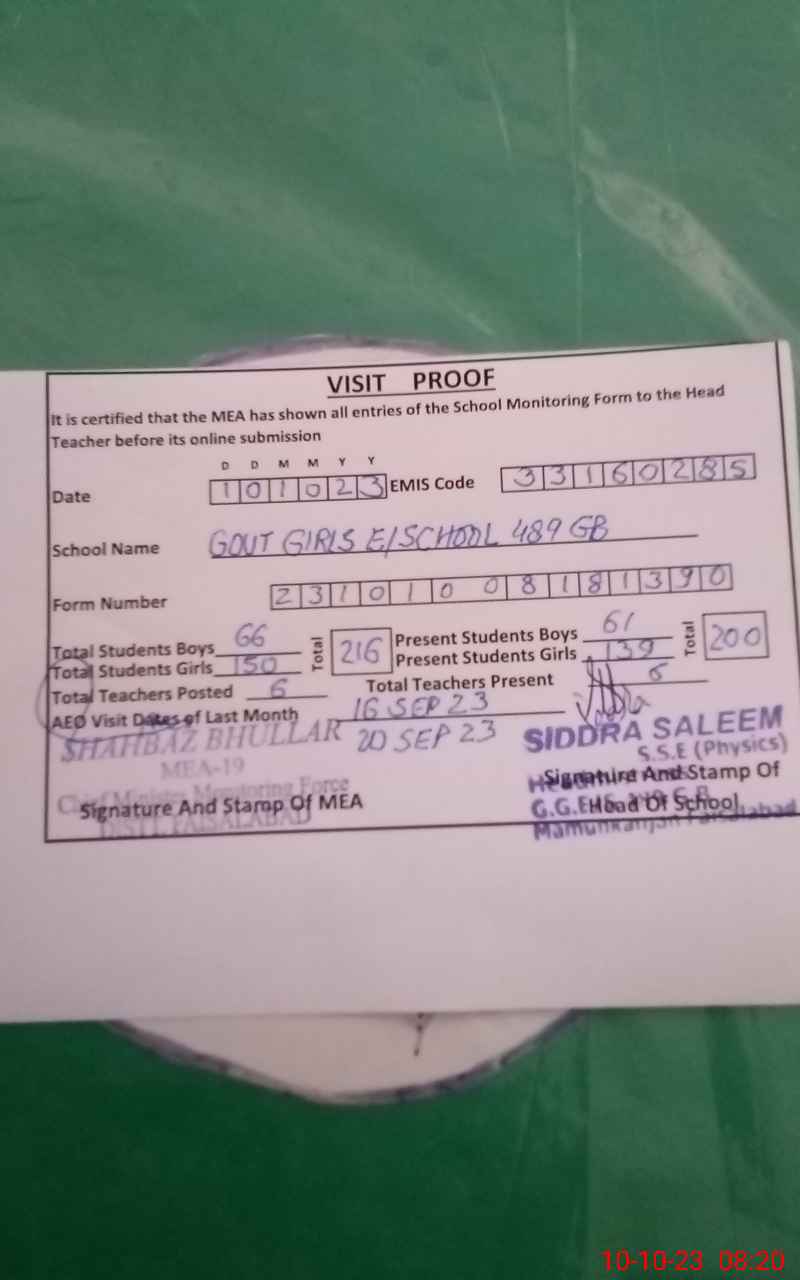 VISIT PROOF
It is certified that the MEA has shown all entries of the School Monitoring Form to the Head
Teacher before its online submission
D D M M Y Y
Date 1 0 1 0 2 3 EMIS Code 3 3 1 6 0 2 8 5
School Name GOVT GIRLS E/SCHOOL 489 GB
Form Number 2 3 1 0 1 0 0 8 1 8 1 3 9 0
Total Students Boys 66 Total 216 Present Students Boys 61 Total 200
Total Students Girls 150 Present Students Girls 139
Total Teachers Posted 6 Total Teachers Present 6
AEO Visit Dates of Last Month 16 SEP 23
20 SEP 23
SHAHBAZ BHULLAR
MEA-19
Chief Minister Monitoring Force
DISTT. FAISALABAD
Signature And Stamp Of MEA
SIDDRA SALEEM
S.S.E (Physics)
Signature And Stamp Of
G.G.E
Head Of School
Mamunkanjan Faisalabad
10-10-23 08:20